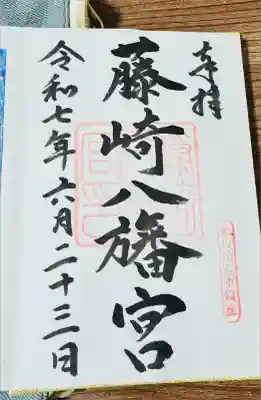 奉拝
藤崎八旛宮
令和七年六月二十三日